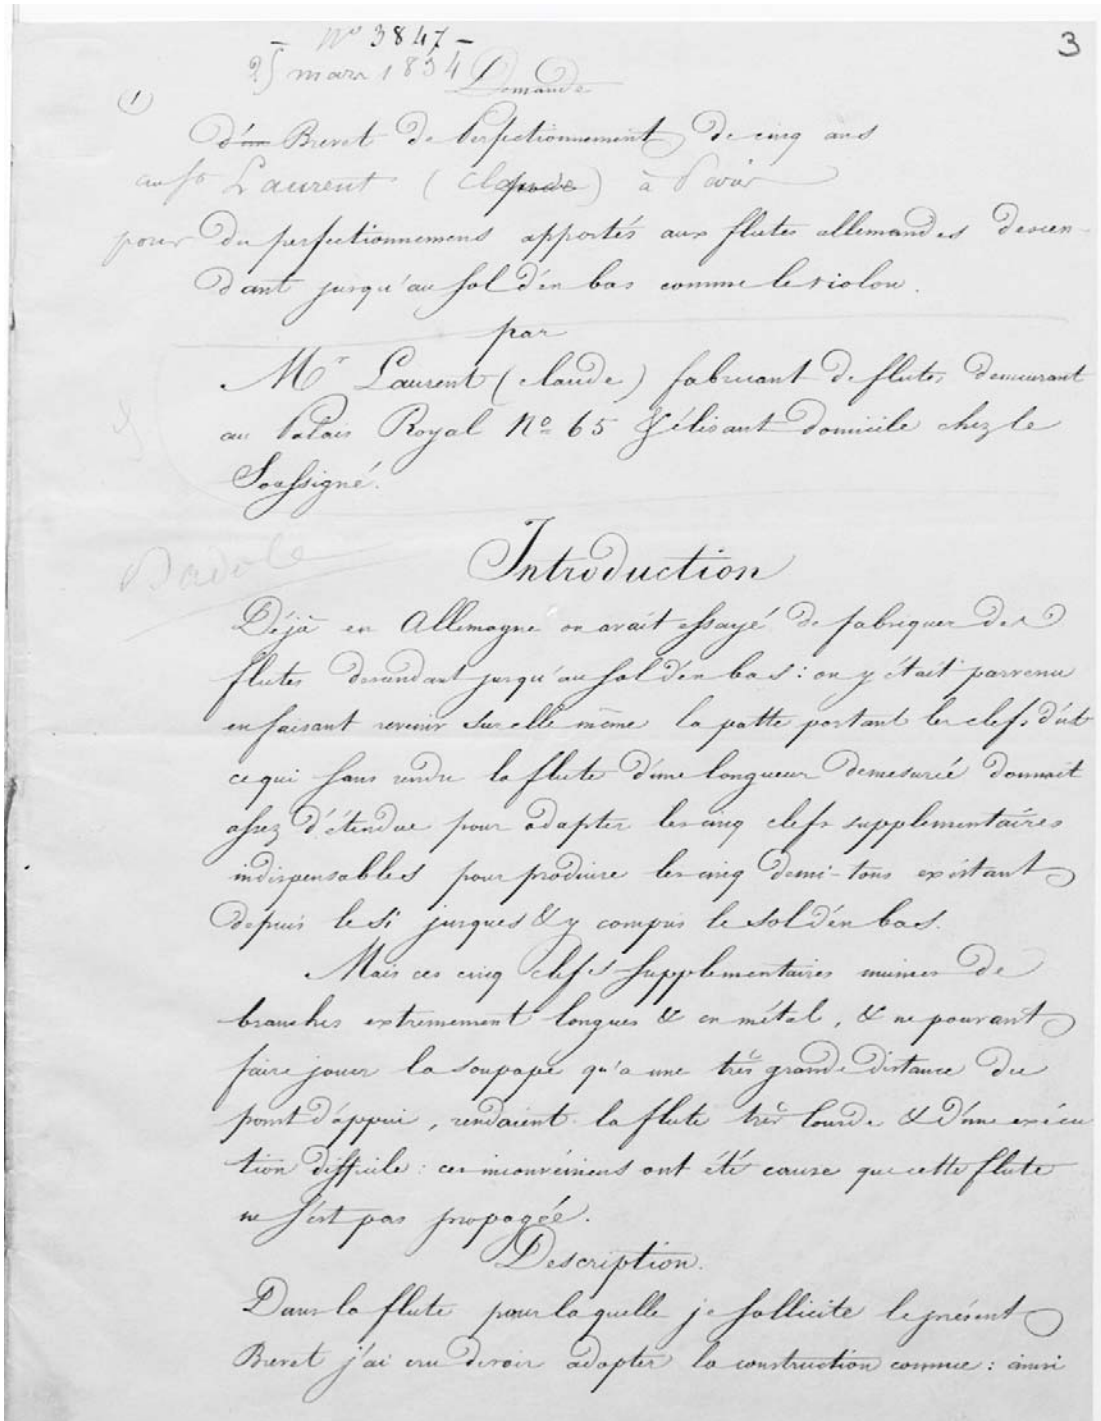 3
- No 3847 -
25 mars 1834
Demande
(1)
d'un Brevet de Perfectionnement de cinq ans
au Sr Laurent (Claude) à Paris
pour du perfectionnemens apportés aux flutes allemandes descen-
dant jusqu'au sol d'en bas comme le violon.
par
Mr Laurent (claude) fabricant de flutes demeurant
au Palais Royal No 65 & élisant domicile chez le
Soussigné.
Introduction
Déjà en Allemagne on avait essayé de fabriquer des
flutes descendant jusqu'au sol d'en bas : on y était parvenu
en faisant revenir sur elle même la patte portant les clefs d'ut
ce qui sans rendre la flute d'une longueur demesurée donnait
assez d'étendue pour adapter les cinq clefs supplementaires
indispensables pour produire les cinq demi-tons existant
depuis le si jusques & y compris le sol d'en bas.
Mais ces cinq clefs supplementaires munies de
branches extremement longues & en métal, & ne pouvant
faire jouer la soupape qu'a une très grande distance du
point d'appui, rendaient la flute très lourde & d'une exécu
tion difficile : ces inconvéniens ont été cause que cette flute
ne s'est pas propagée.
Description.
Dans la flute pour laquelle je sollicite le présent
Brevet j'ai cru devoir adapter la construction connue : ainsi